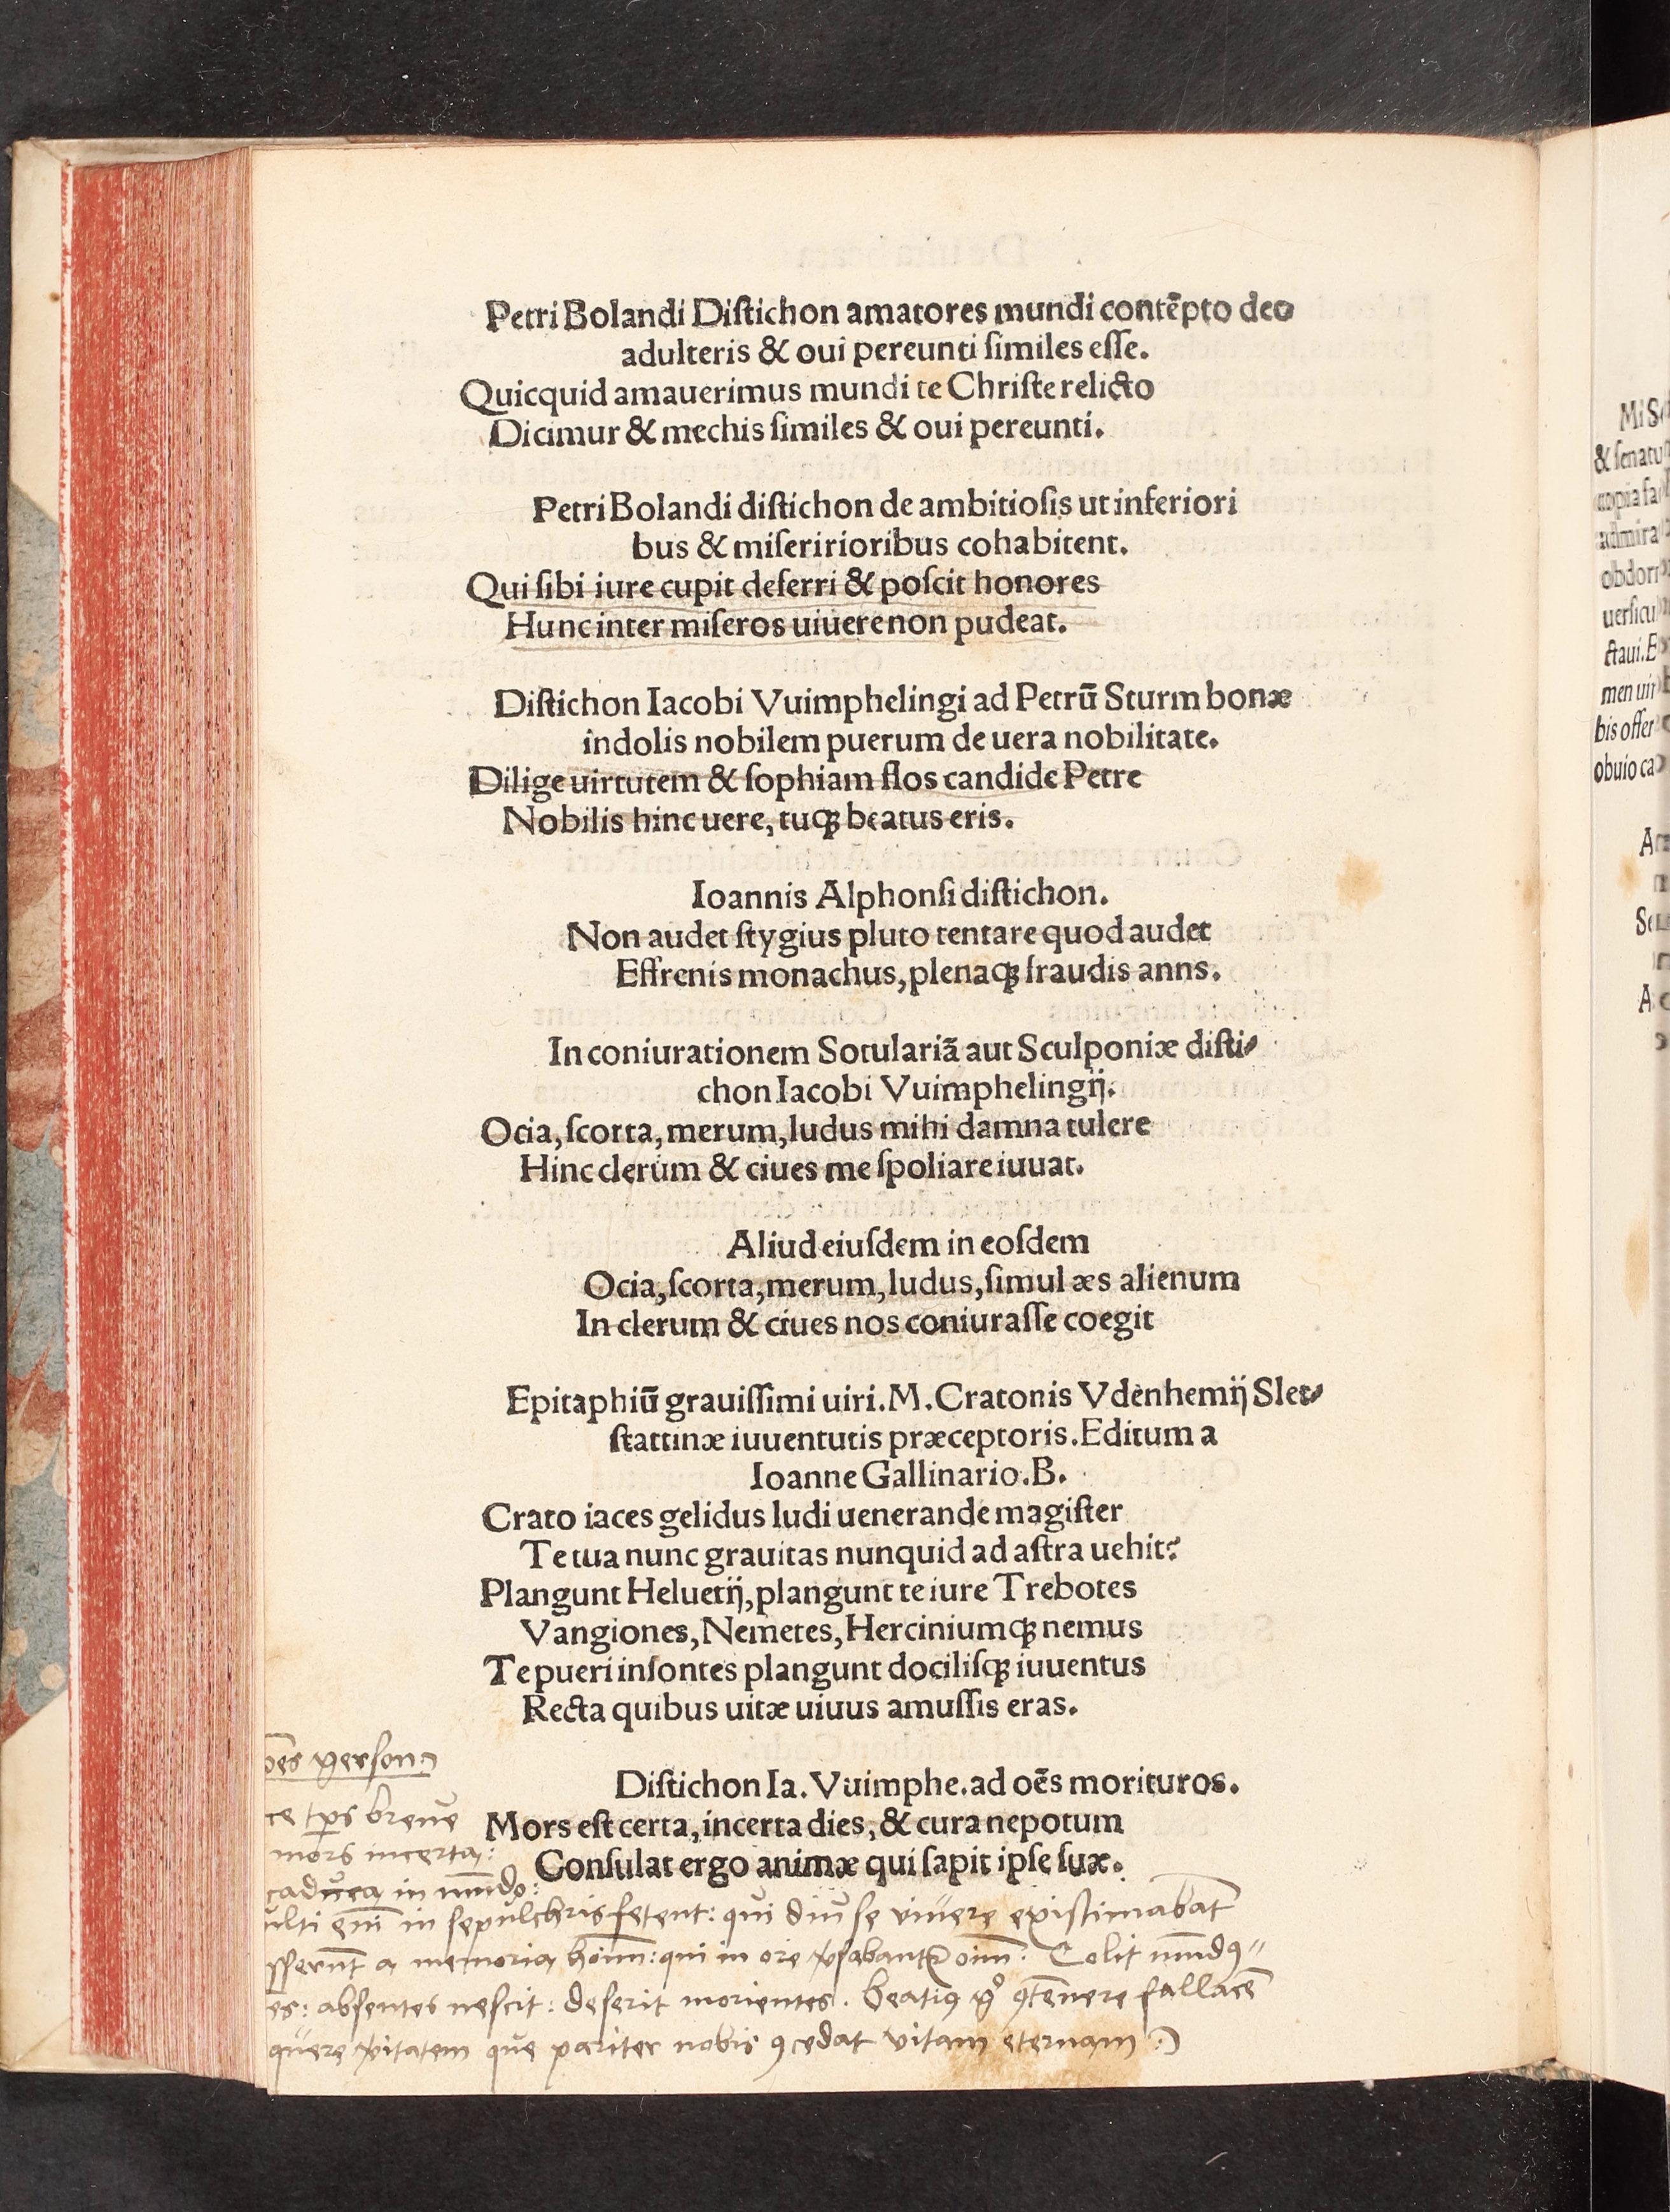 Petri Bolandi Distichon amatores mundi contēpto deo
adulteris & oui pereunti similes esse.
Quicquid amauerimus mundi te Christe relicto
Dicimur & mechis similes & oui pereunti.
Petri Bolandi distichon de ambitiosis ut inferiori
bus & miseririoribus cohabitent.
Qui sibi iure cupit deferri & poscit honores
Hunc inter miseros uiuere non pudeat.
Distichon Iacobi Vuimphelingi ad Petrū Sturm bonæ
indolis nobilem puerum de uera nobilitate.
Dilige uirtutem & sophiam flos candide Petre
Nobilis hinc uere, tuqꝫ beatus eris.
Ioannis Alphonsi distichon.
Non audet stygius pluto tentare quod audet
Effrenis monachus, plenaqꝫ fraudis anns.
In coniurationem Sotulariā aut Sculponiæ disti⸗
chon Iacobi Vuimphelingij.
Ocia, scorta, merum, ludus mihi damna tulere
Hinc clerum & ciues me spoliare iuuat.
Aliud eiusdem in eosdem
Ocia, scorta, merum, ludus, simul æs alienum
In clerum & ciues nos coniurasse coegit
Epitaphiū grauissimi uiri. M. Cratonis Vdenhemij Slet⸗
stattinæ iuuentutis præceptoris. Editum a
Ioanne Gallinario. B.
Crato iaces gelidus ludi uenerande magister
Te tua nunc grauitas nunquid ad astra uehit?
Plangunt Heluetij, plangunt te iure Trebotes
Vangiones, Nemetes, Herciniumqꝫ nemus
Te pueri insontes plangunt docilisqꝫ iuuentus
Recta quibus uitæ uiuus amussis eras.
Distichon Ia. Vuimphe. ad oēs morituros.
Mors est certa, incerta dies, & cura nepotum
Consulat ergo animæ qui sapit ipse suæ.
person
ce tp̄s breue
mors incerta:
caduca in mūdo:
ulti em̄ in sepulchris fetent: qui diu se viuere existimabāt
sserūt a memoria hoīm: qui in ore oīm: Tolit mūdꝯ
es: absentes nescit: deserit morientes. beatiꝯ gͦ ꝯtēnere fallacē
quere que pariter nobis ꝯcedat vitam eternam